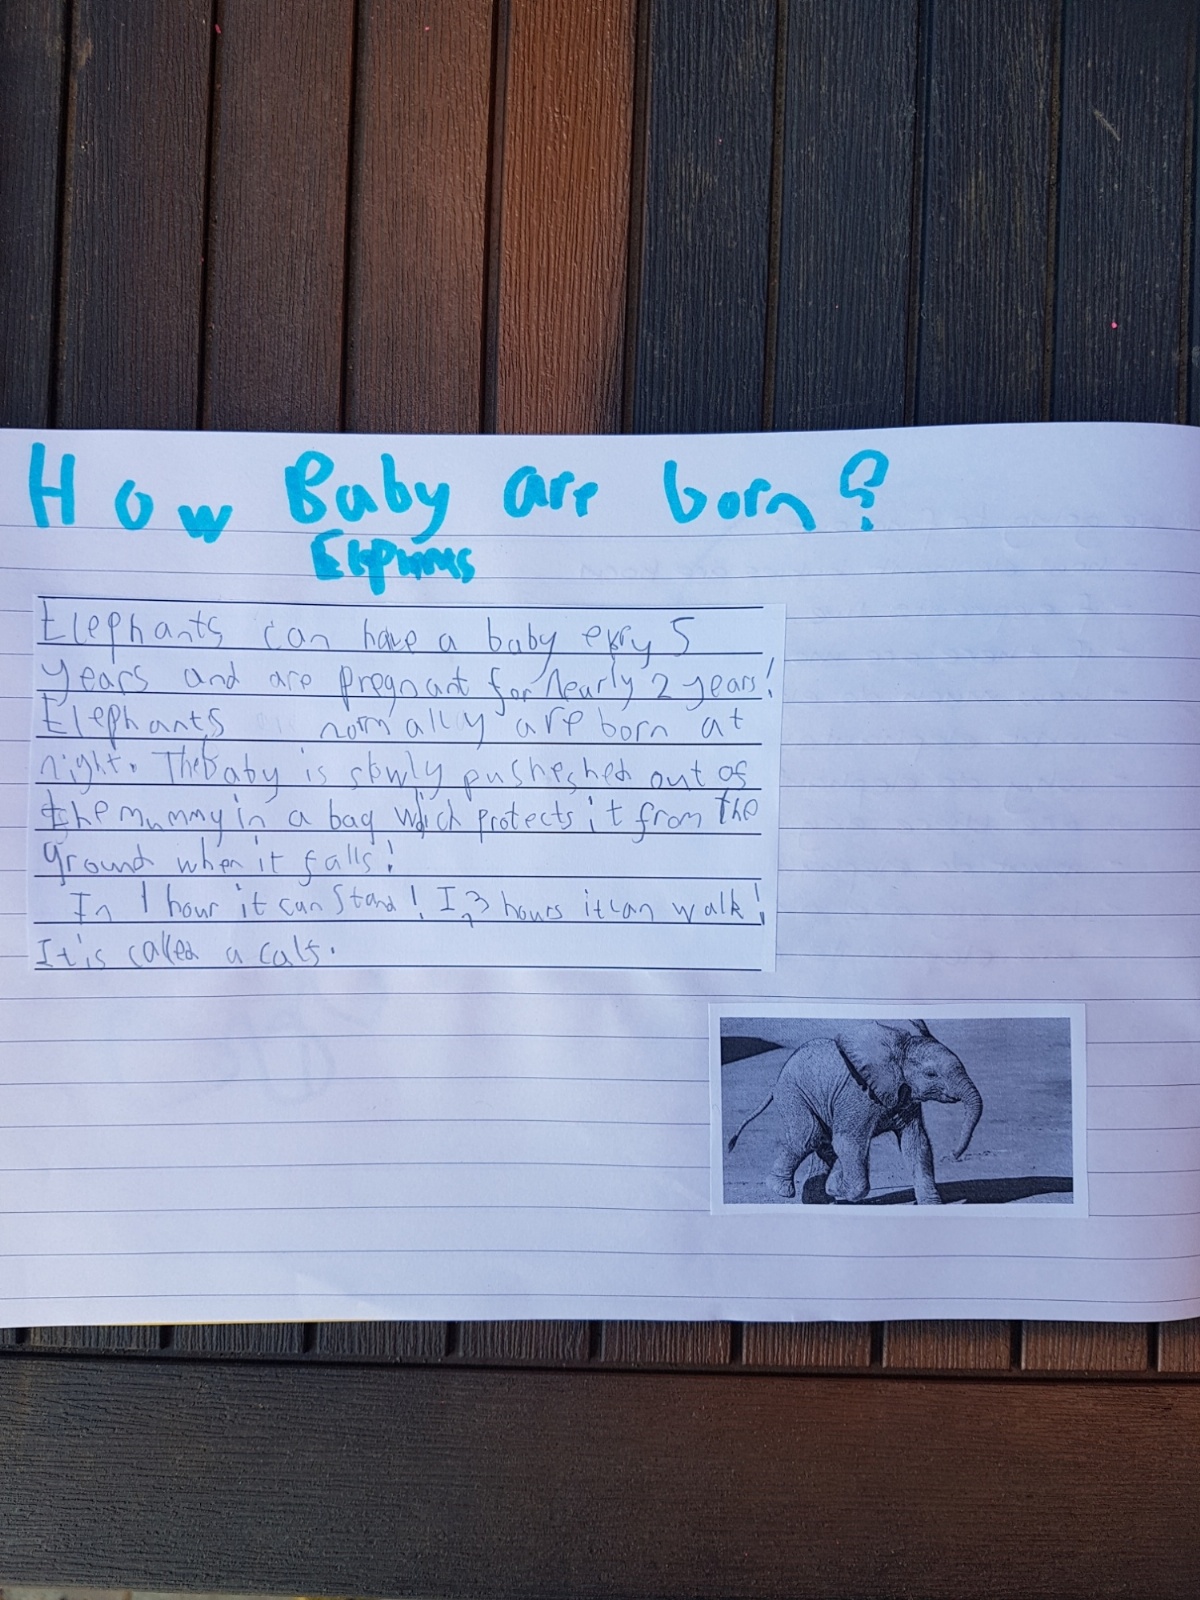 How Baby are born?
Elephants can have a baby evry 5
years and are pregnant for nearly 2 years!
Elephants normally are born at
night. The baby is slowly pusheshed out of
the mummy in a bag which protects it from the
ground when it falls!
In 1 hour it can stand! In 3 hours it can walk!
It's called a calf.